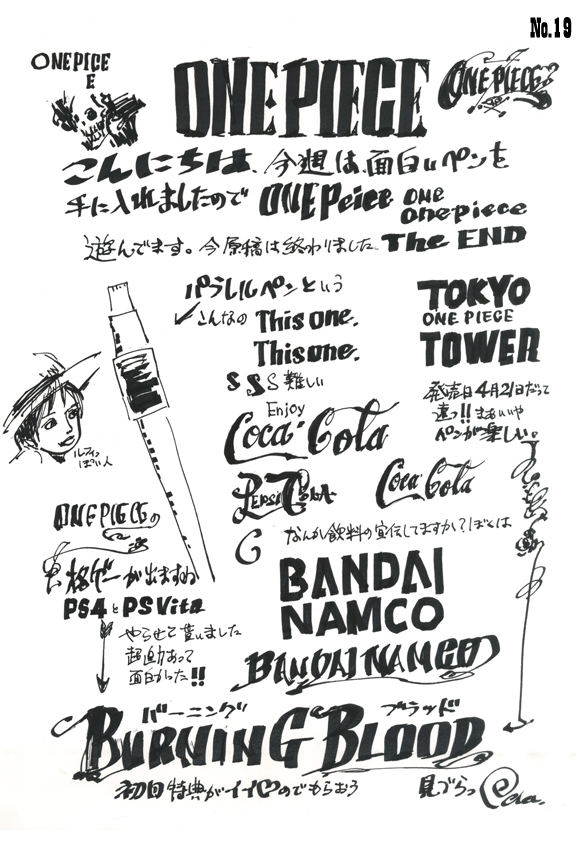 No.19
ONEPIECE
E
ONE PIECE
ONE PIECE?
こんにちは、今週は、面白いペンを
手に入れましたので ONE Peice ONE
onepiece
遊んでます。今原稿は終わりました The END
パラレルペンという
こんなの This one.
This one.
S S S 難しい
TOKYO
ONE PIECE
TOWER
発売日4月21日だって
違っ!!まぁいいや
ペンが楽しい。
ルフィ
ぽい人
Enjoy
Coca-Cola
Pepsi Cola
Coca-Cola
なんか飲料の宣伝してますか?ぼくは
C
ONE PIECEの
格ゲーが出ますね
PS4とPSVita
やらせて貰いました
超迫力あって
面白かった!!
BANDAI
NAMCO
BANDAI NAMCO
バーニング ブラッド
BURNING BLOOD
初回特典がイイのでもらおう
見づらっ
Oda.